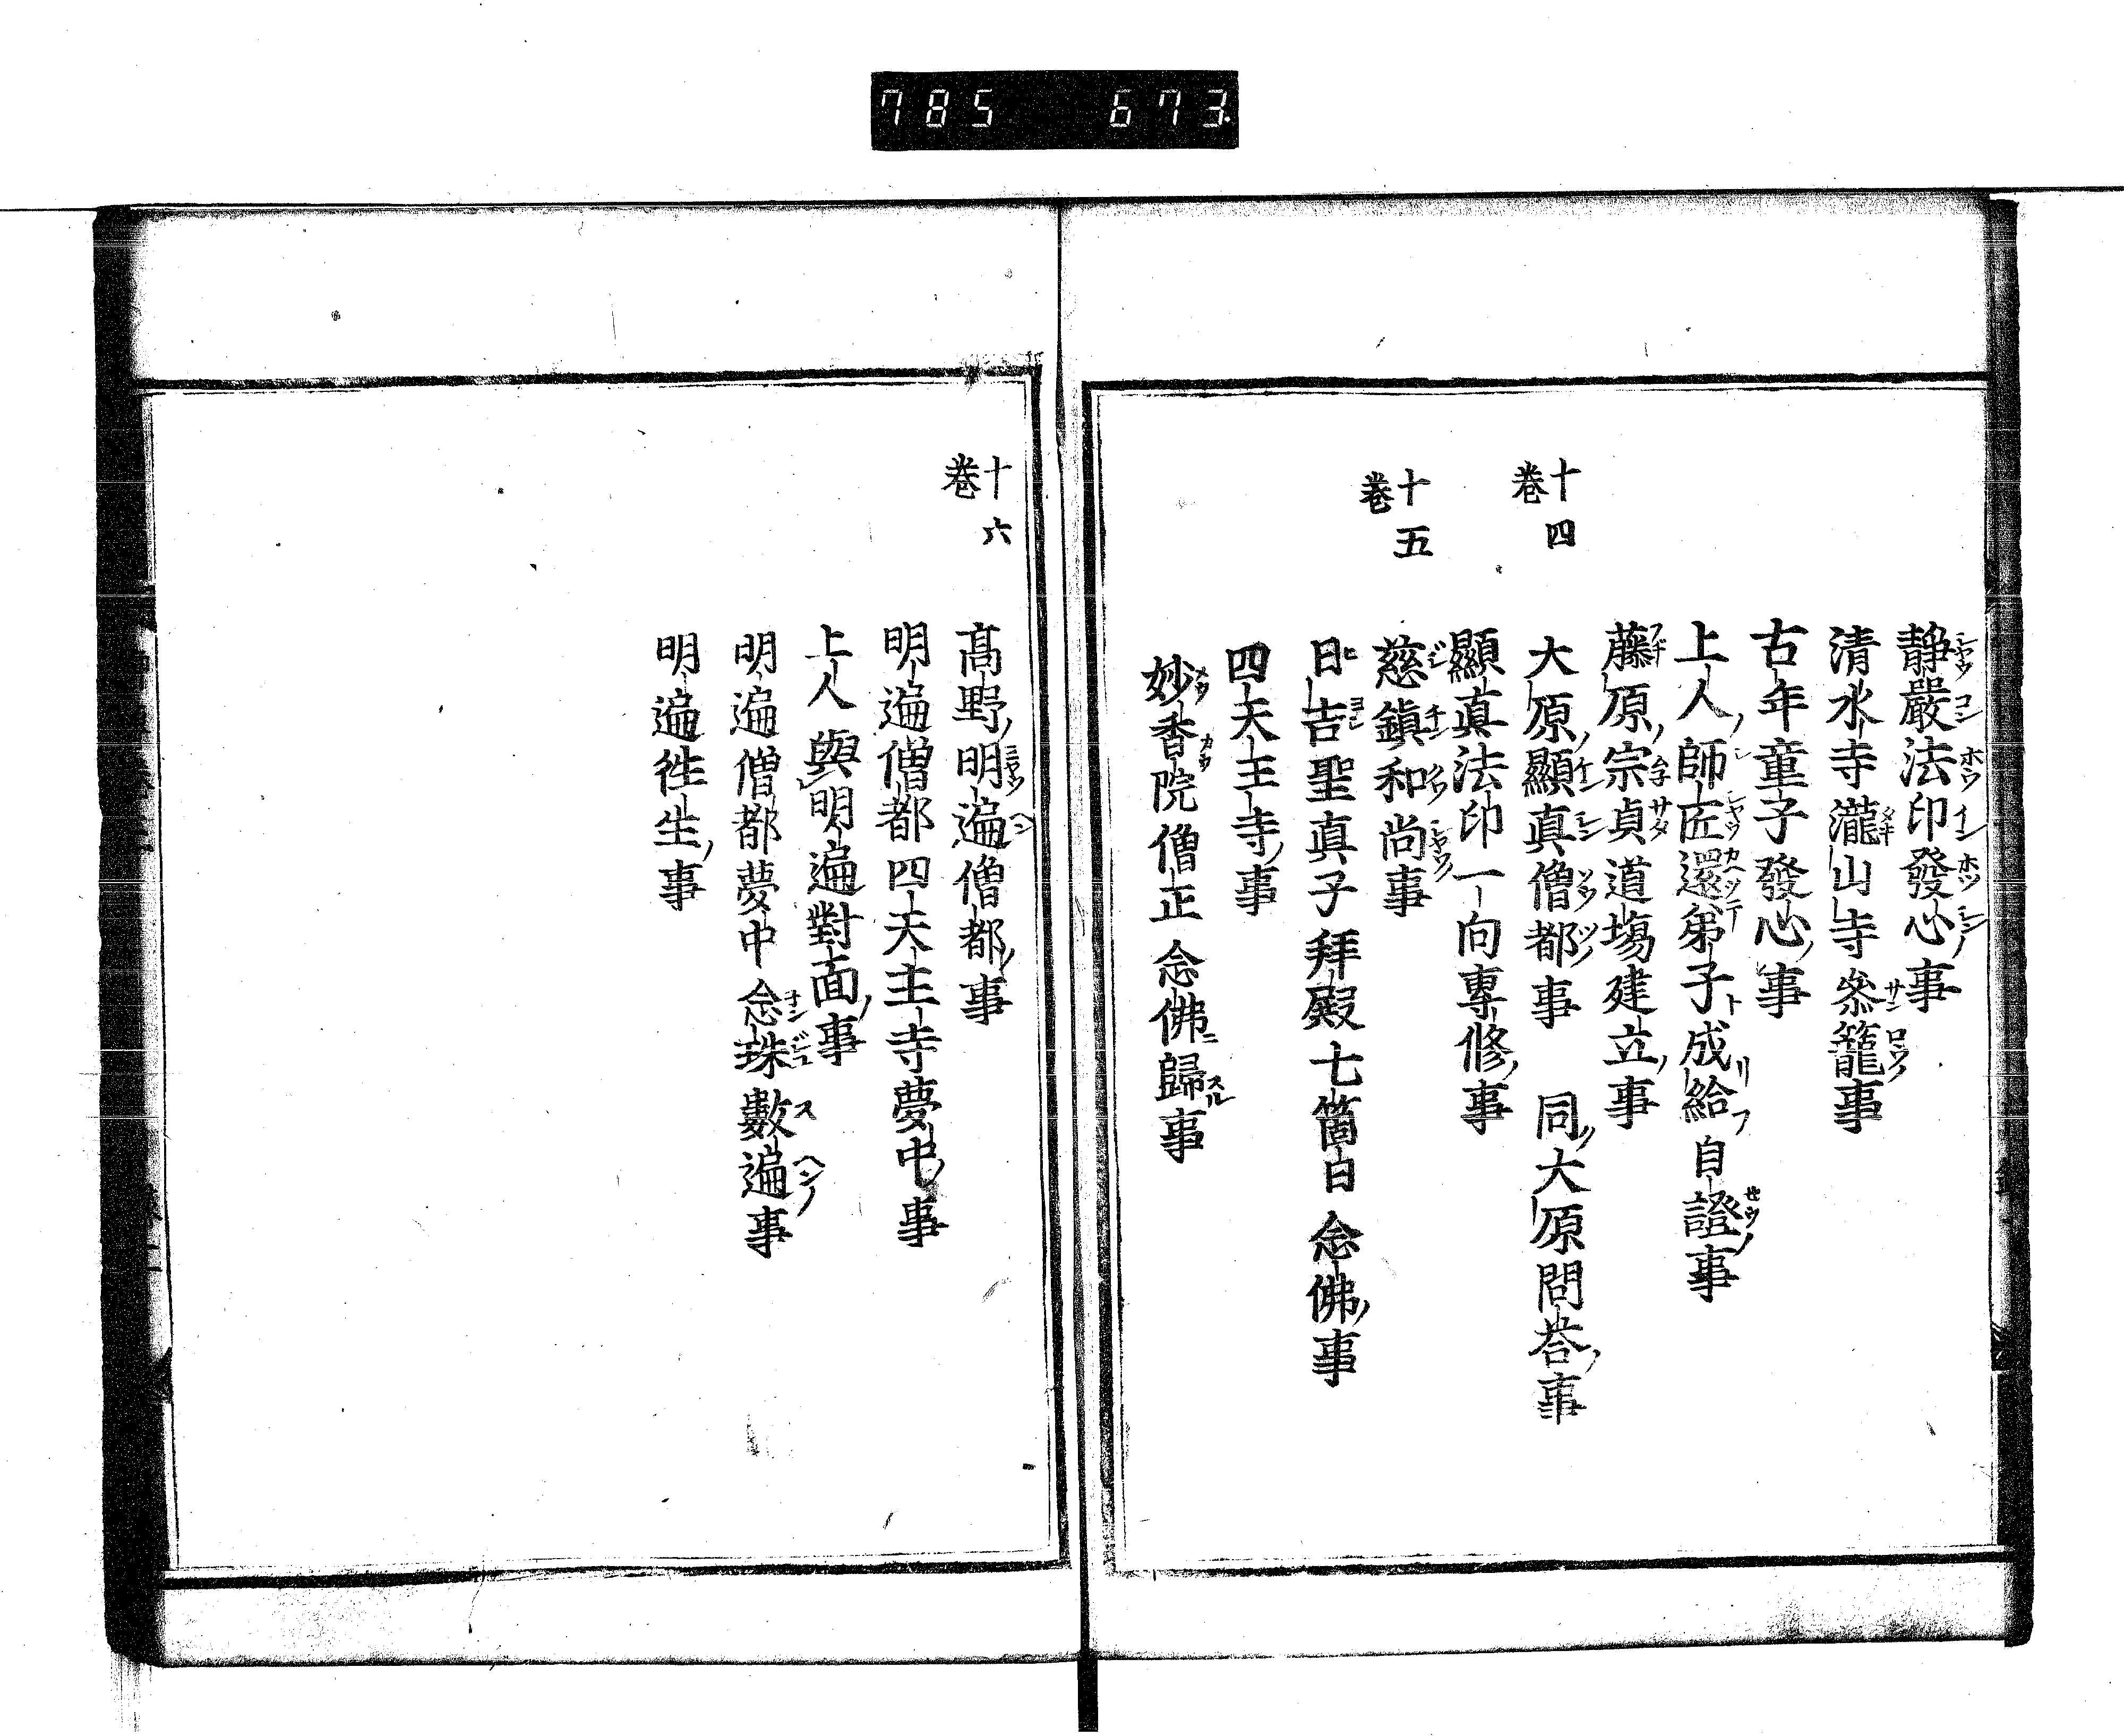 785 673
靜嚴法印發心事
清水寺瀧山寺叅籠事
古年童子發心事
上人師匠還弟子成給自證事
藤原宗貞道場建立事
十四卷
大原顯真僧都事 同大原問荅事
顯真法印一向專修事
十五卷
慈鎮和尚事
日吉聖真子拜殿七箇日念佛事
四天王寺事
妙香院僧正念佛歸事
十六卷
高野明遍僧都事
明遍僧都四天主寺夢中事
上人與明遍對面事
明遍僧都夢中念珠數遍事
明遍徃生事